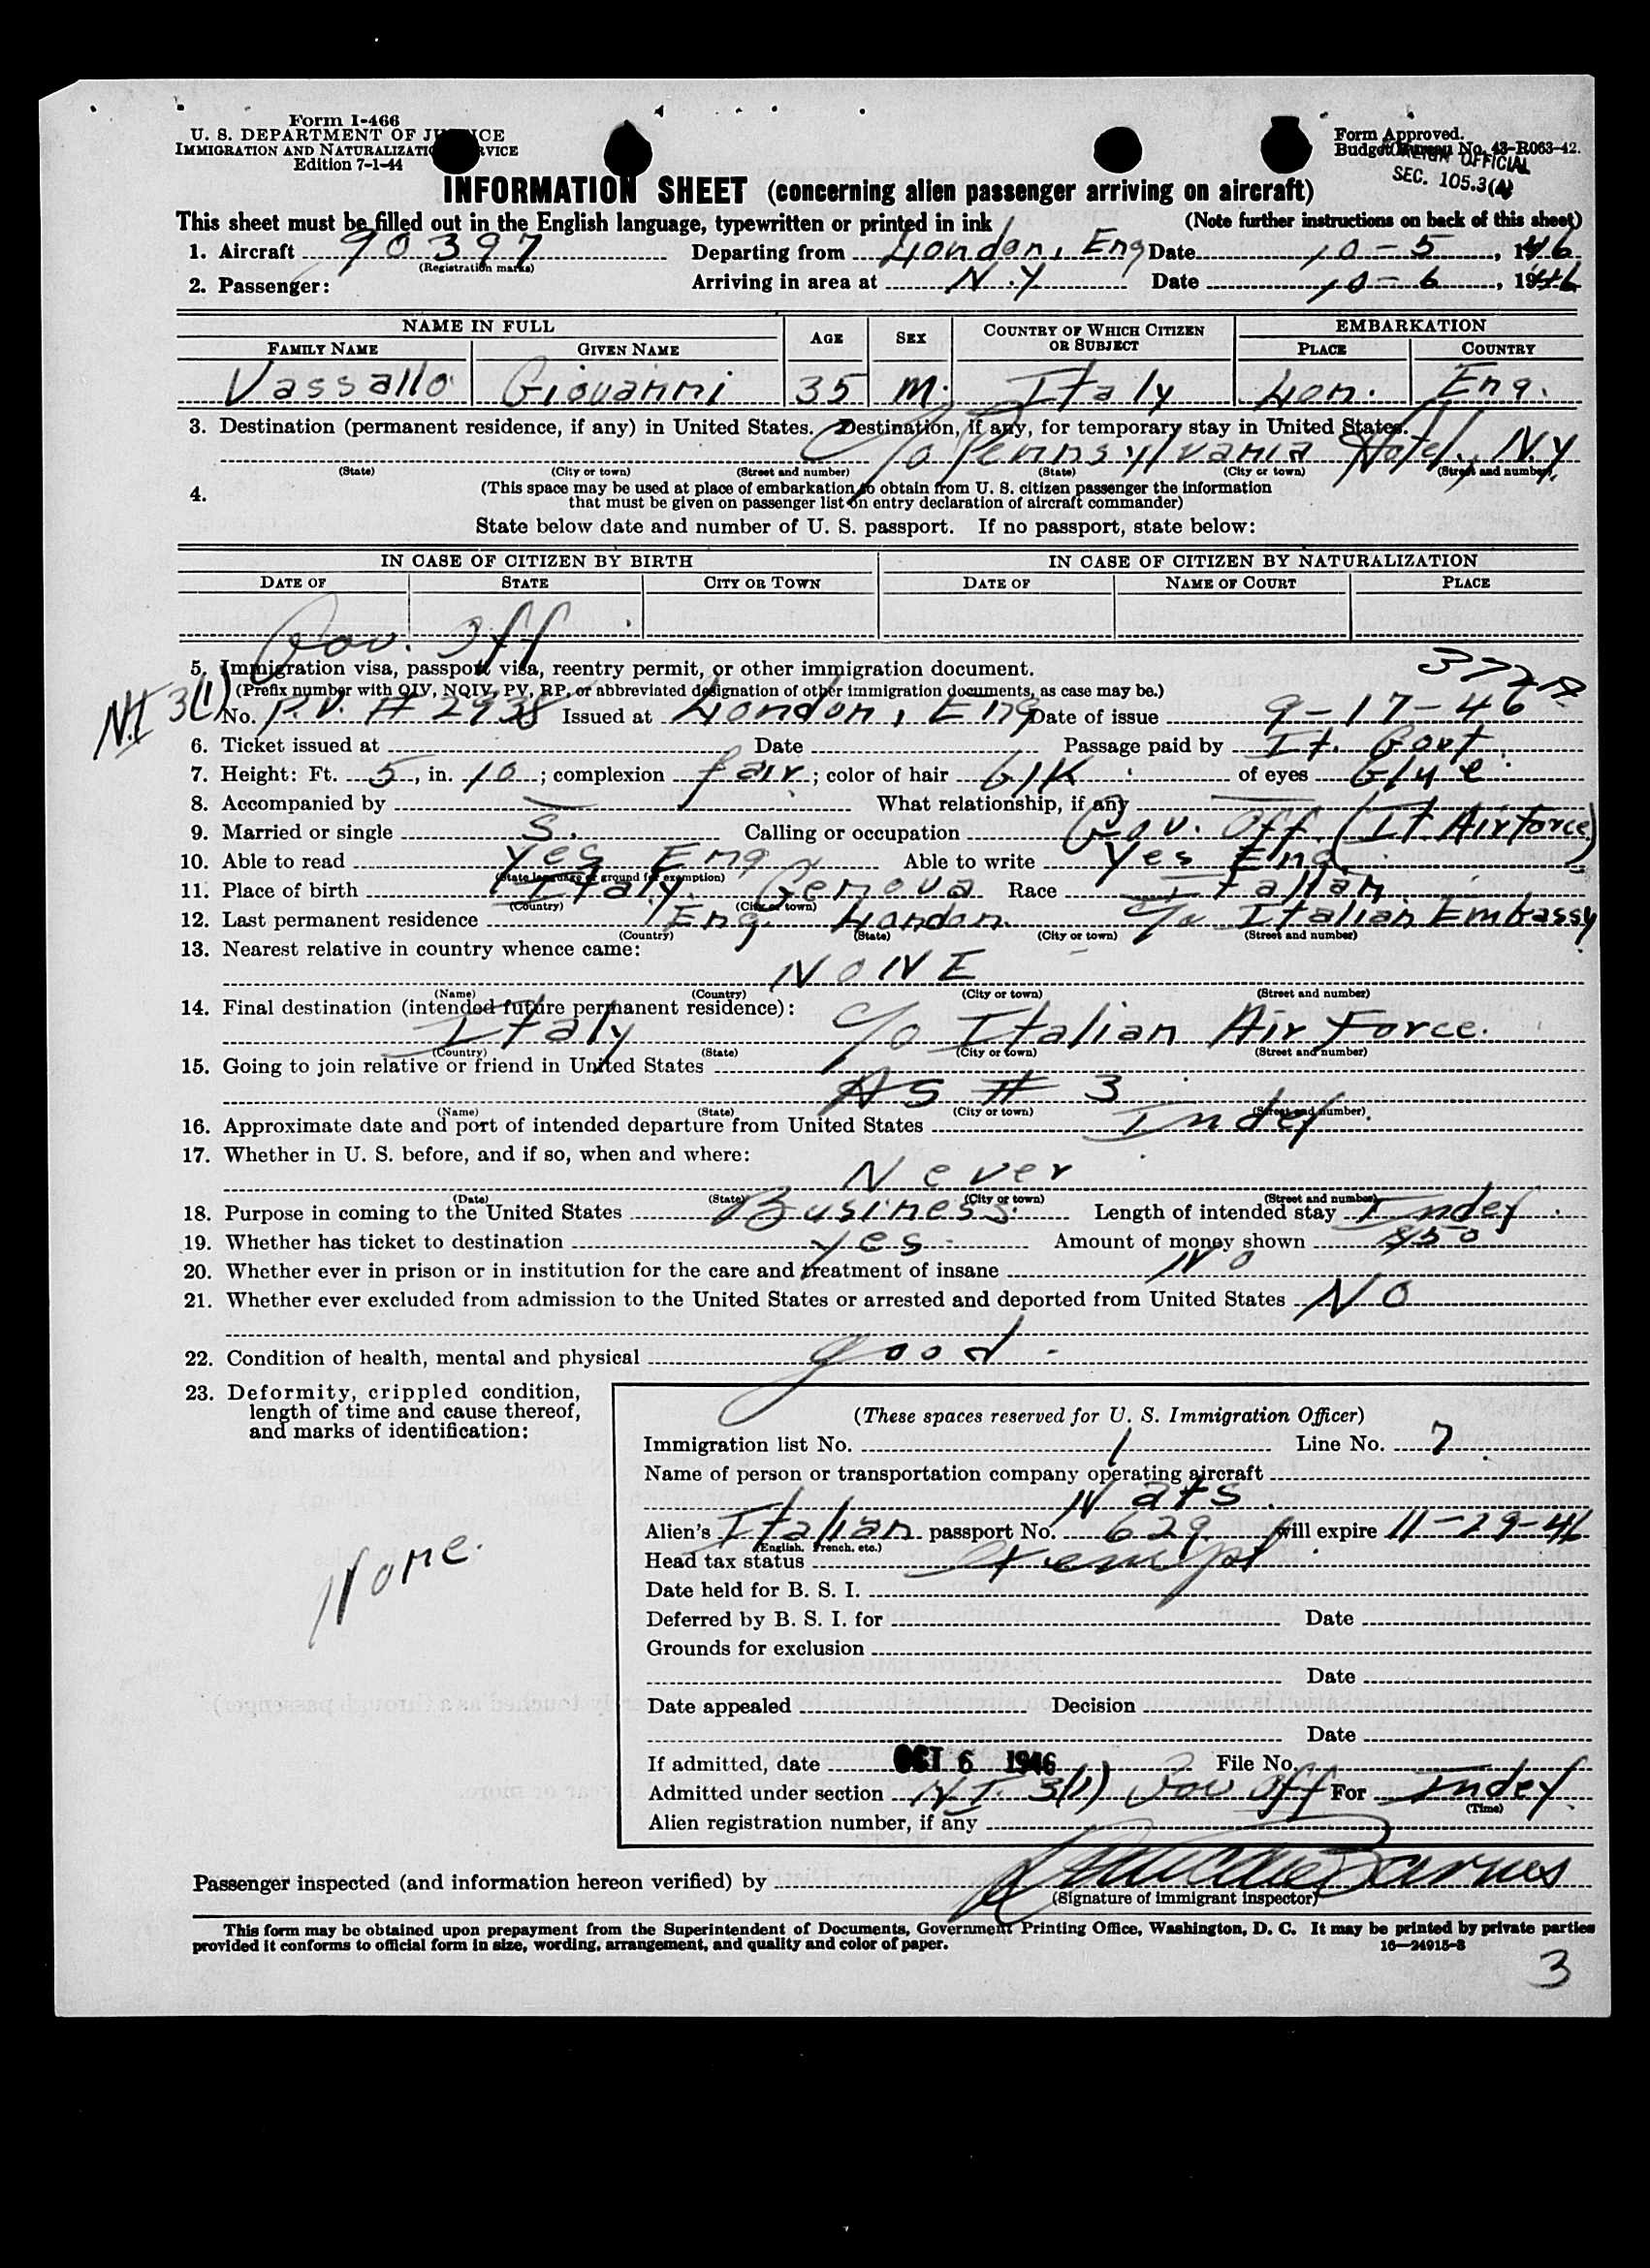 Form I-466
U. S. DEPARTMENT OF
IMMIGRATION AND
Edition 7-1-44
Form Approved.
Budget Bureau No. 43-R063-42.
OFFICIAL
SEC. 105.3(4)
INFORMATION SHEET (concerning alien passenger arriving on aircraft)
This sheet must be filled out in the English language, typewritten or printed in ink (Note further instructions on back of this sheet)
1. Aircraft 90397 Departing from London, Eng Date 10-5, 1946
(Registration marks)
2. Passenger: Arriving in area at N.Y Date 10-6, 1946
NAME IN FULL AGE SEX COUNTRY OF WHICH CITIZEN OR SUBJECT EMBARKATION
FAMILY NAME GIVEN NAME PLACE COUNTRY
Vassallo Giovanni 35 M. Italy Lon. Eng.
3. Destination (permanent residence, if any) in United States. Destination, if any, for temporary stay in United States.
c/o Pennsylvania Hotel, N.Y.
(State) (City or town) (Street and number) (State) (City or town) (Street and number)
4. (This space may be used at place of embarkation to obtain from U. S. citizen passenger the information
that must be given on passenger list on entry declaration of aircraft commander)
State below date and number of U. S. passport. If no passport, state below:
IN CASE OF CITIZEN BY BIRTH IN CASE OF CITIZEN BY NATURALIZATION
DATE OF STATE CITY OR TOWN DATE OF NAME OF COURT PLACE
Gov. Off
5. Immigration visa, passport visa, reentry permit, or other immigration document.
(Prefix number with QIV, NQIV, PV, RP, or abbreviated designation of other immigration documents, as case may be.)
N.I 3(1) No. P.V. # 2938 Issued at London, Eng Date of issue 9-17-46
6. Ticket issued at Date Passage paid by It. Govt.
7. Height: Ft. 5, in. 10; complexion fair; color of hair blk of eyes blue
8. Accompanied by — What relationship, if any —
9. Married or single S. Calling or occupation Gov. Off (It Air Force)
10. Able to read Yes Eng Able to write Yes Eng
(State language or ground for exemption)
11. Place of birth Italy Genova Race Italian
(Country) (City or town)
12. Last permanent residence Eng London c/o Italian Embassy
(Country) (State) (City or town) (Street and number)
13. Nearest relative in country whence came:
NONE
(Name) (Country) (City or town) (Street and number)
14. Final destination (intended future permanent residence):
Italy c/o Italian Air Force.
(Country) (State) (City or town) (Street and number)
15. Going to join relative or friend in United States
AS # 3
(Name) (State) (City or town) (Street and number)
16. Approximate date and port of intended departure from United States Indef.
17. Whether in U. S. before, and if so, when and where:
Never
(Date) (State) (City or town) (Street and number)
18. Purpose in coming to the United States Business. Length of intended stay Indef.
19. Whether has ticket to destination yes Amount of money shown $50
20. Whether ever in prison or in institution for the care and treatment of insane No
21. Whether ever excluded from admission to the United States or arrested and deported from United States NO
22. Condition of health, mental and physical good
23. Deformity, crippled condition,
length of time and cause thereof,
and marks of identification:
None.
(These spaces reserved for U. S. Immigration Officer)
Immigration list No. 1 Line No. 7
Name of person or transportation company operating aircraft
Nats
Alien's Italian passport No. 629 will expire 11-29-46
(English, French, etc.)
Head tax status Exempt
Date held for B. S. I.
Deferred by B. S. I. for Date
Grounds for exclusion
Date
Date appealed Decision
Date
If admitted, date OCT 6 1946 File No.
Admitted under section N.I. 3(1) Gov Off For Indef
(Time)
Alien registration number, if any
Passenger inspected (and information hereon verified) by
(Signature of immigrant inspector)
This form may be obtained upon prepayment from the Superintendent of Documents, Government Printing Office, Washington, D. C. It may be printed by private parties
provided it conforms to official form in size, wording, arrangement, and quality and color of paper. 16—24915-3
3